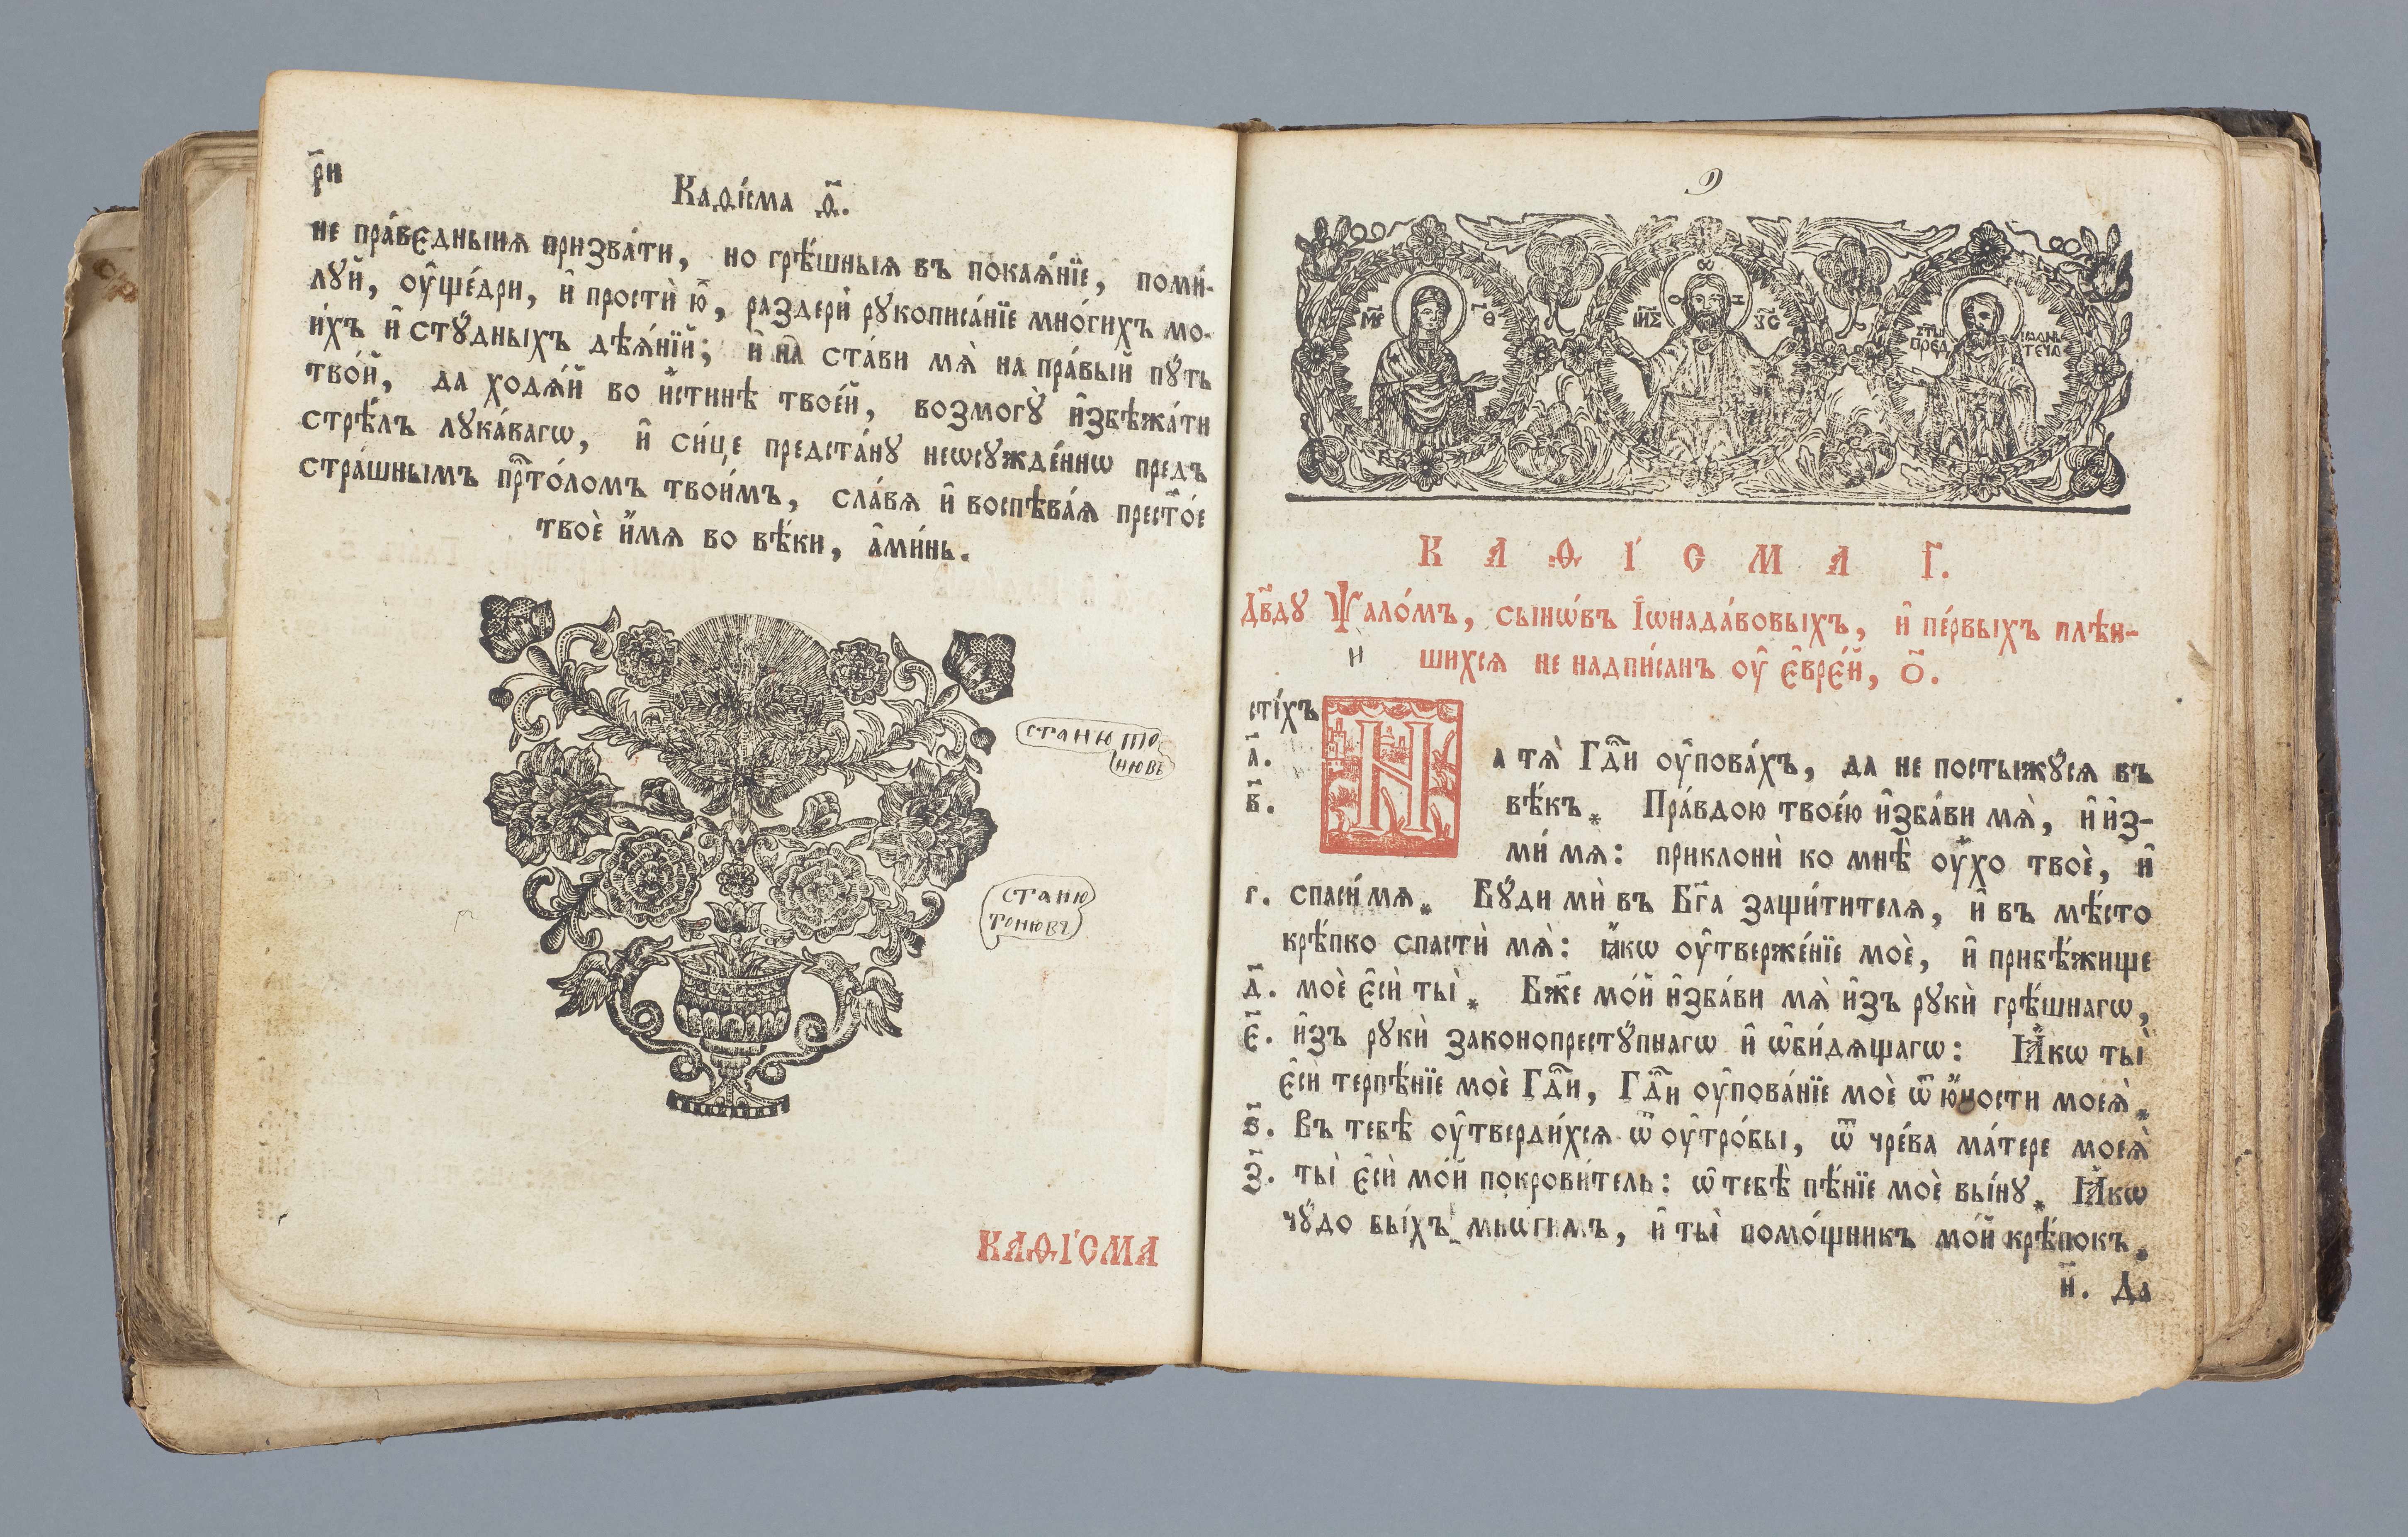 р҃и
Каѳі́сма ѳ҃.
не пра́вєдныия призва́ти, но грѣ́шныя въ покаѧ́нїе, поми́-
лꙋй, оу҆ще́дри, и҆ простѝ ю҆̀, раздерѝ рꙋкописа́нїе мно́гихъ мо-
и́хъ и҆ стꙋ́дныхъ дѣѧ́нїй; и҆ на ста́ви мѧ̀ на пра́вый пꙋ́ть
тво́й, да ходѧ́й во и҆́стинѣ твое́й, возмогꙋ̀ и҆збѣжа́ти
стрѣ́лъ лꙋка́вагѡ, и҆ си́це предста́нꙋ неѡсꙋжде́ннѡ предъ
стра́шнымъ прⷭ҇то́ломъ твои́мъ, сла́вѧ и҆ воспѣва́ѧ престⷪ҇е́
твоѐ и҆́мѧ во вѣ́ки, а҆ми́нь.
станю то
нювъ
станю
тонювъ
КАѲІ́СМА
9
М҃Р Ѳ҃
Ѡ О Н
ІИ҃С Х҃С
СТ҃Ы ІѠАНЪ
ПРЕД ТЕЧА
КАѲІ́СМА І҃.
Дв҃дꙋ Ѱало́мъ, сынѡ́въ І҆ѡнада́вовыхъ, и҆ пе́рвыхъ плѣн-
шихсѧ не надпи́санъ оу҆ є҆вре́й, о҃.
и
сті́хъ
а҃. На тѧ̀ Гдⷭ҇и оу҆пова́хъ, да не постыжꙋ́сѧ въ
в҃. вѣ́къ. * Пра́вдою твое́ю и҆зба́ви мѧ̀, и҆ и҆з-
ми́ мѧ: приклонѝ ко мнѣ̀ оу҆́хо твоѐ, и҆
г. спаси́ мѧ. * Бꙋ́ди мѝ въ Бг҃а защи́тителѧ, и҆ въ мѣ́сто
крѣ́пко спастѝ мѧ̀: ꙗ҆́кѡ оу҆твержде́нїе моѐ, и҆ прибѣ́жище
д҃. моѐ є҆сѝ ты̀. * Бж҃е мо́й и҆зба́ви мѧ̀ и҆зъ рꙋкѝ грѣ́шнагѡ,
є҃. и҆зъ рꙋкѝ законопрестꙋ́пнагѡ и҆ ѡ҆би́дѧщагѡ: Ꙗ҆́кѡ ты̀
є҆сѝ терпѣ́нїе моѐ Гдⷭ҇и, Гдⷭ҇и оу҆пова́нїе моѐ ѿ ю҆́ности моеѧ̀. *
ѕ҃. Въ тебѣ̀ оу҆тверди́хсѧ ѿ оу҆тро́бы, ѿ чре́ва ма́тере моеѧ̀
з҃. ты̀ є҆сѝ мо́й покрови́тель: ѡ҆ тебѣ̀ пѣ́нїе моѐ вы́нꙋ. * Ꙗ҆́кѡ
чꙋ́до бы́хъ мнѡ́гимъ, и҆ ты̀ помо́щникъ мо́й крѣ́покъ. *
и҃. Да